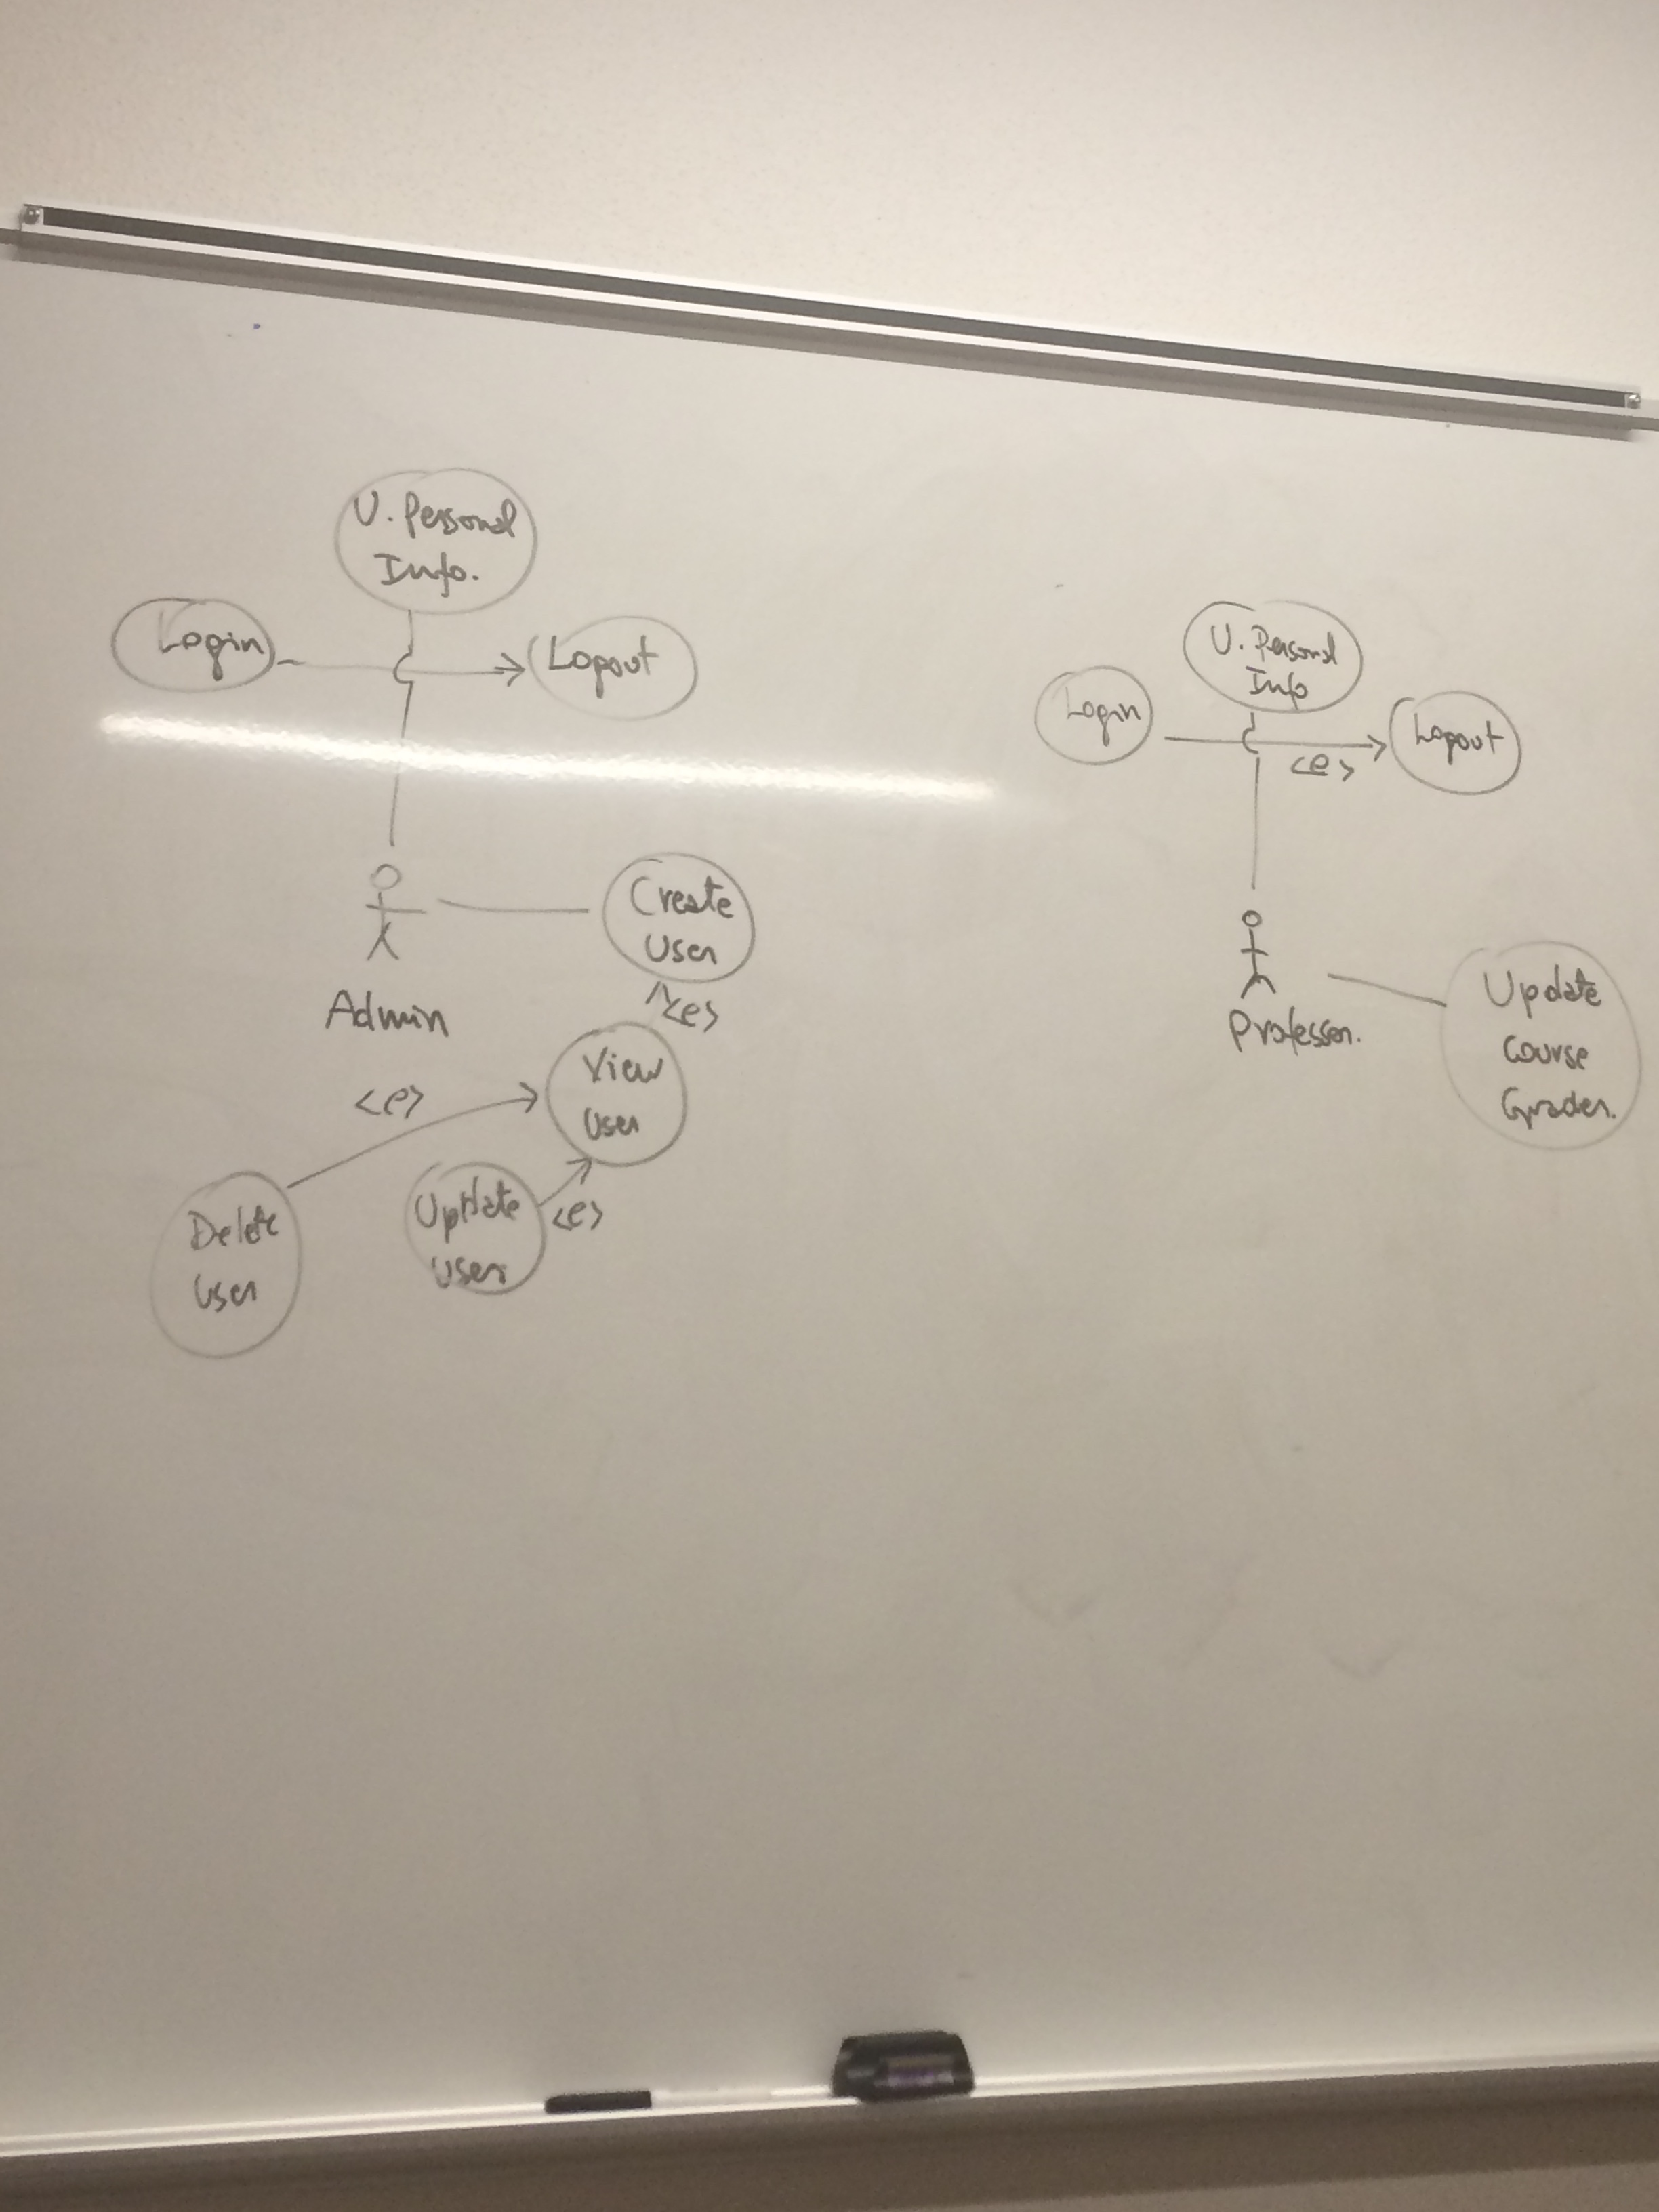 U. Personal
Info.
Login
Logout
Admin
Create
User
<e>
View
User
<e>
Delete
User
Update
User
<e>
U. Personal
Info
Login
Logout
<e>
Professor.
Update
Course
Grades.